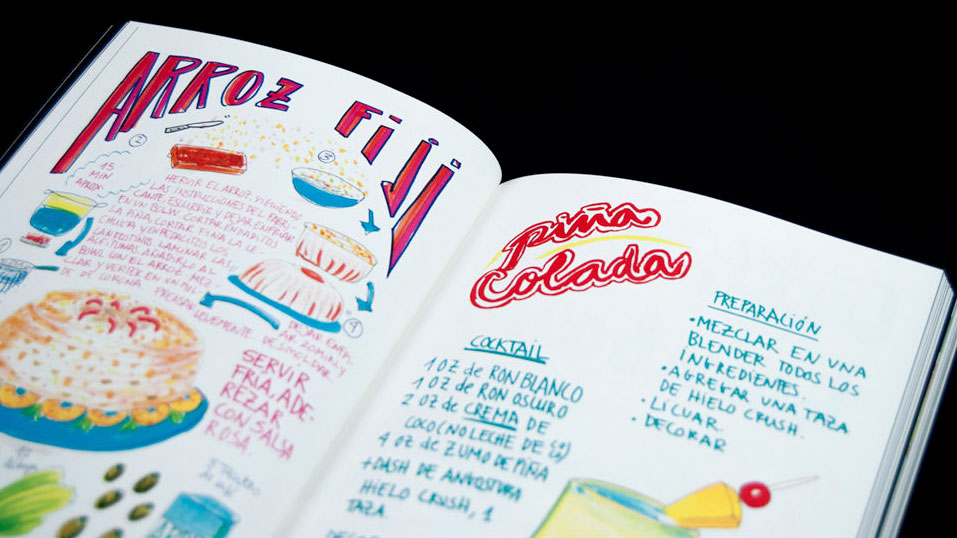 ARROZ FIJI
2
3
15
MIN
APROX.
HERVIR EL ARROZ SIGUIENDO
LAS INSTRUCCIONES DEL FABRI-
CANTE. ESCURRIR Y DEJAR ENFRIAR
EN UN BOWL. CORTAR EN DADITOS
LA PIÑA, CORTAR FINA LA LE-
CHUGA Y EN PETALITOS LOS
LAMINAR LAS
ACEITUNAS. AÑADIRLO AL
BOWL CON EL ARROZ, MEZ-
CLAR Y VERTER EN UN
DE CORONA. PRESIONAR
LEVEMENTE.
4
DEJAR ENFRI-
AR 20 MIN. Y
DESMOLDAR.
SERVIR
FRÍA, ADE-
REZAR
CON SALSA
ROSA.
piña
colada
COCKTAIL
1 OZ de RON BLANCO
1 OZ de RON OSCURO
2 OZ de CREMA DE
COCO (NO LECHE DE
4 OZ de ZUMO DE PIÑA
+ DASH DE ANGOSTURA
HIELO CRUSH, 1
TAZA
PREPARACIÓN
• MEZCLAR EN UNA
BLENDER TODOS LOS
INGREDIENTES.
• AGREGAR UNA TAZA
DE HIELO CRUSH.
• LICUAR.
• DECORAR